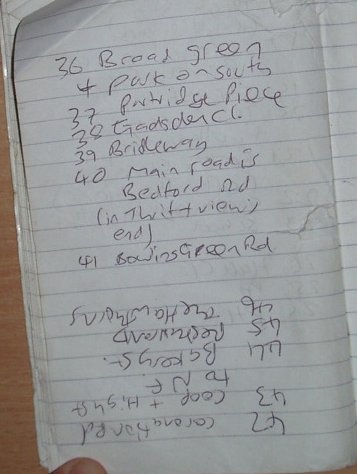 36 Broad green
+ park on south
37 Partridge Piece
38 Gadsden Cl.
39 Bridleway
40 Main road is
Bedford Rd
(in Thrift view
end)
41 Green Rd
42 Coronation Rd
43 Coop + High St
to NE
44
45
46 The Hawthorns